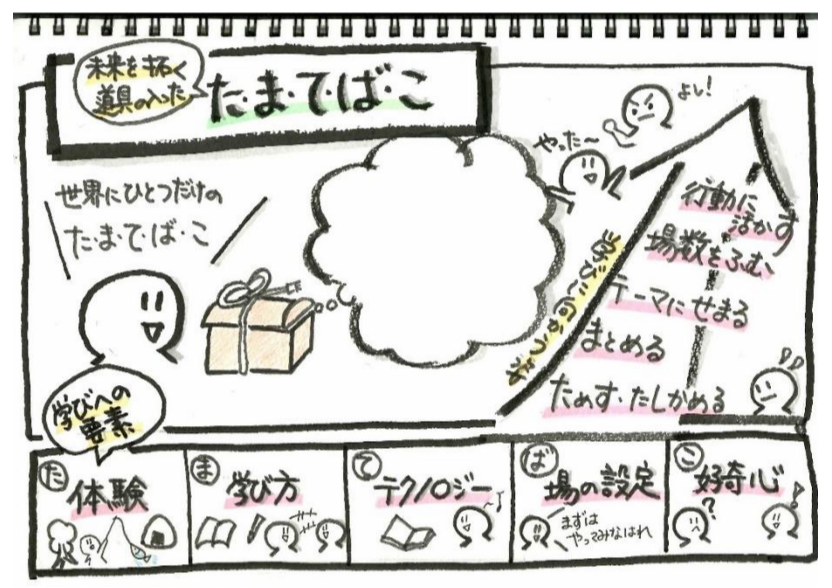 未来を拓く
道具の入った
た・ま・て・ば・こ
世界にひとつだけの
た・ま・て・ば・こ
よし!
やった〜
行動に
活かす
場数をふむ
テーマにせまる
まとめる
ためす・たしかめる
学びに向かう
学びへの
要素
た
体験
ま
学び方
て
テクノロジー
ば
場の設定
まずは
やってみなはれ
こ
好奇心
?
!